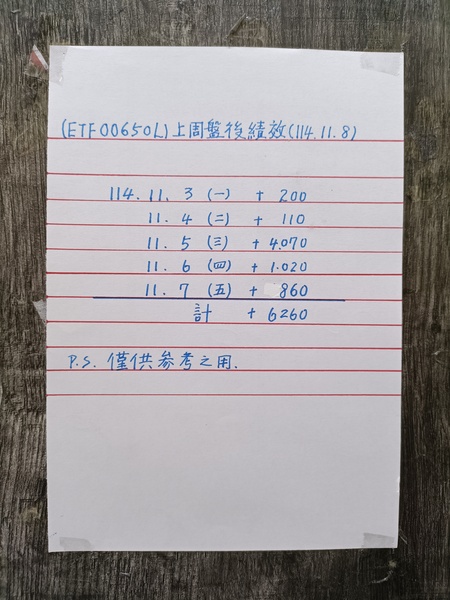 (ETF00650L)上周盤後績效(114.11.8)
114.11. 3 (一) + 200
11. 4 (二) + 110
11. 5 (三) + 4.070
11. 6 (四) + 1.020
11. 7 (五) + 860
計 + 6260
P.S. 僅供參考之用.